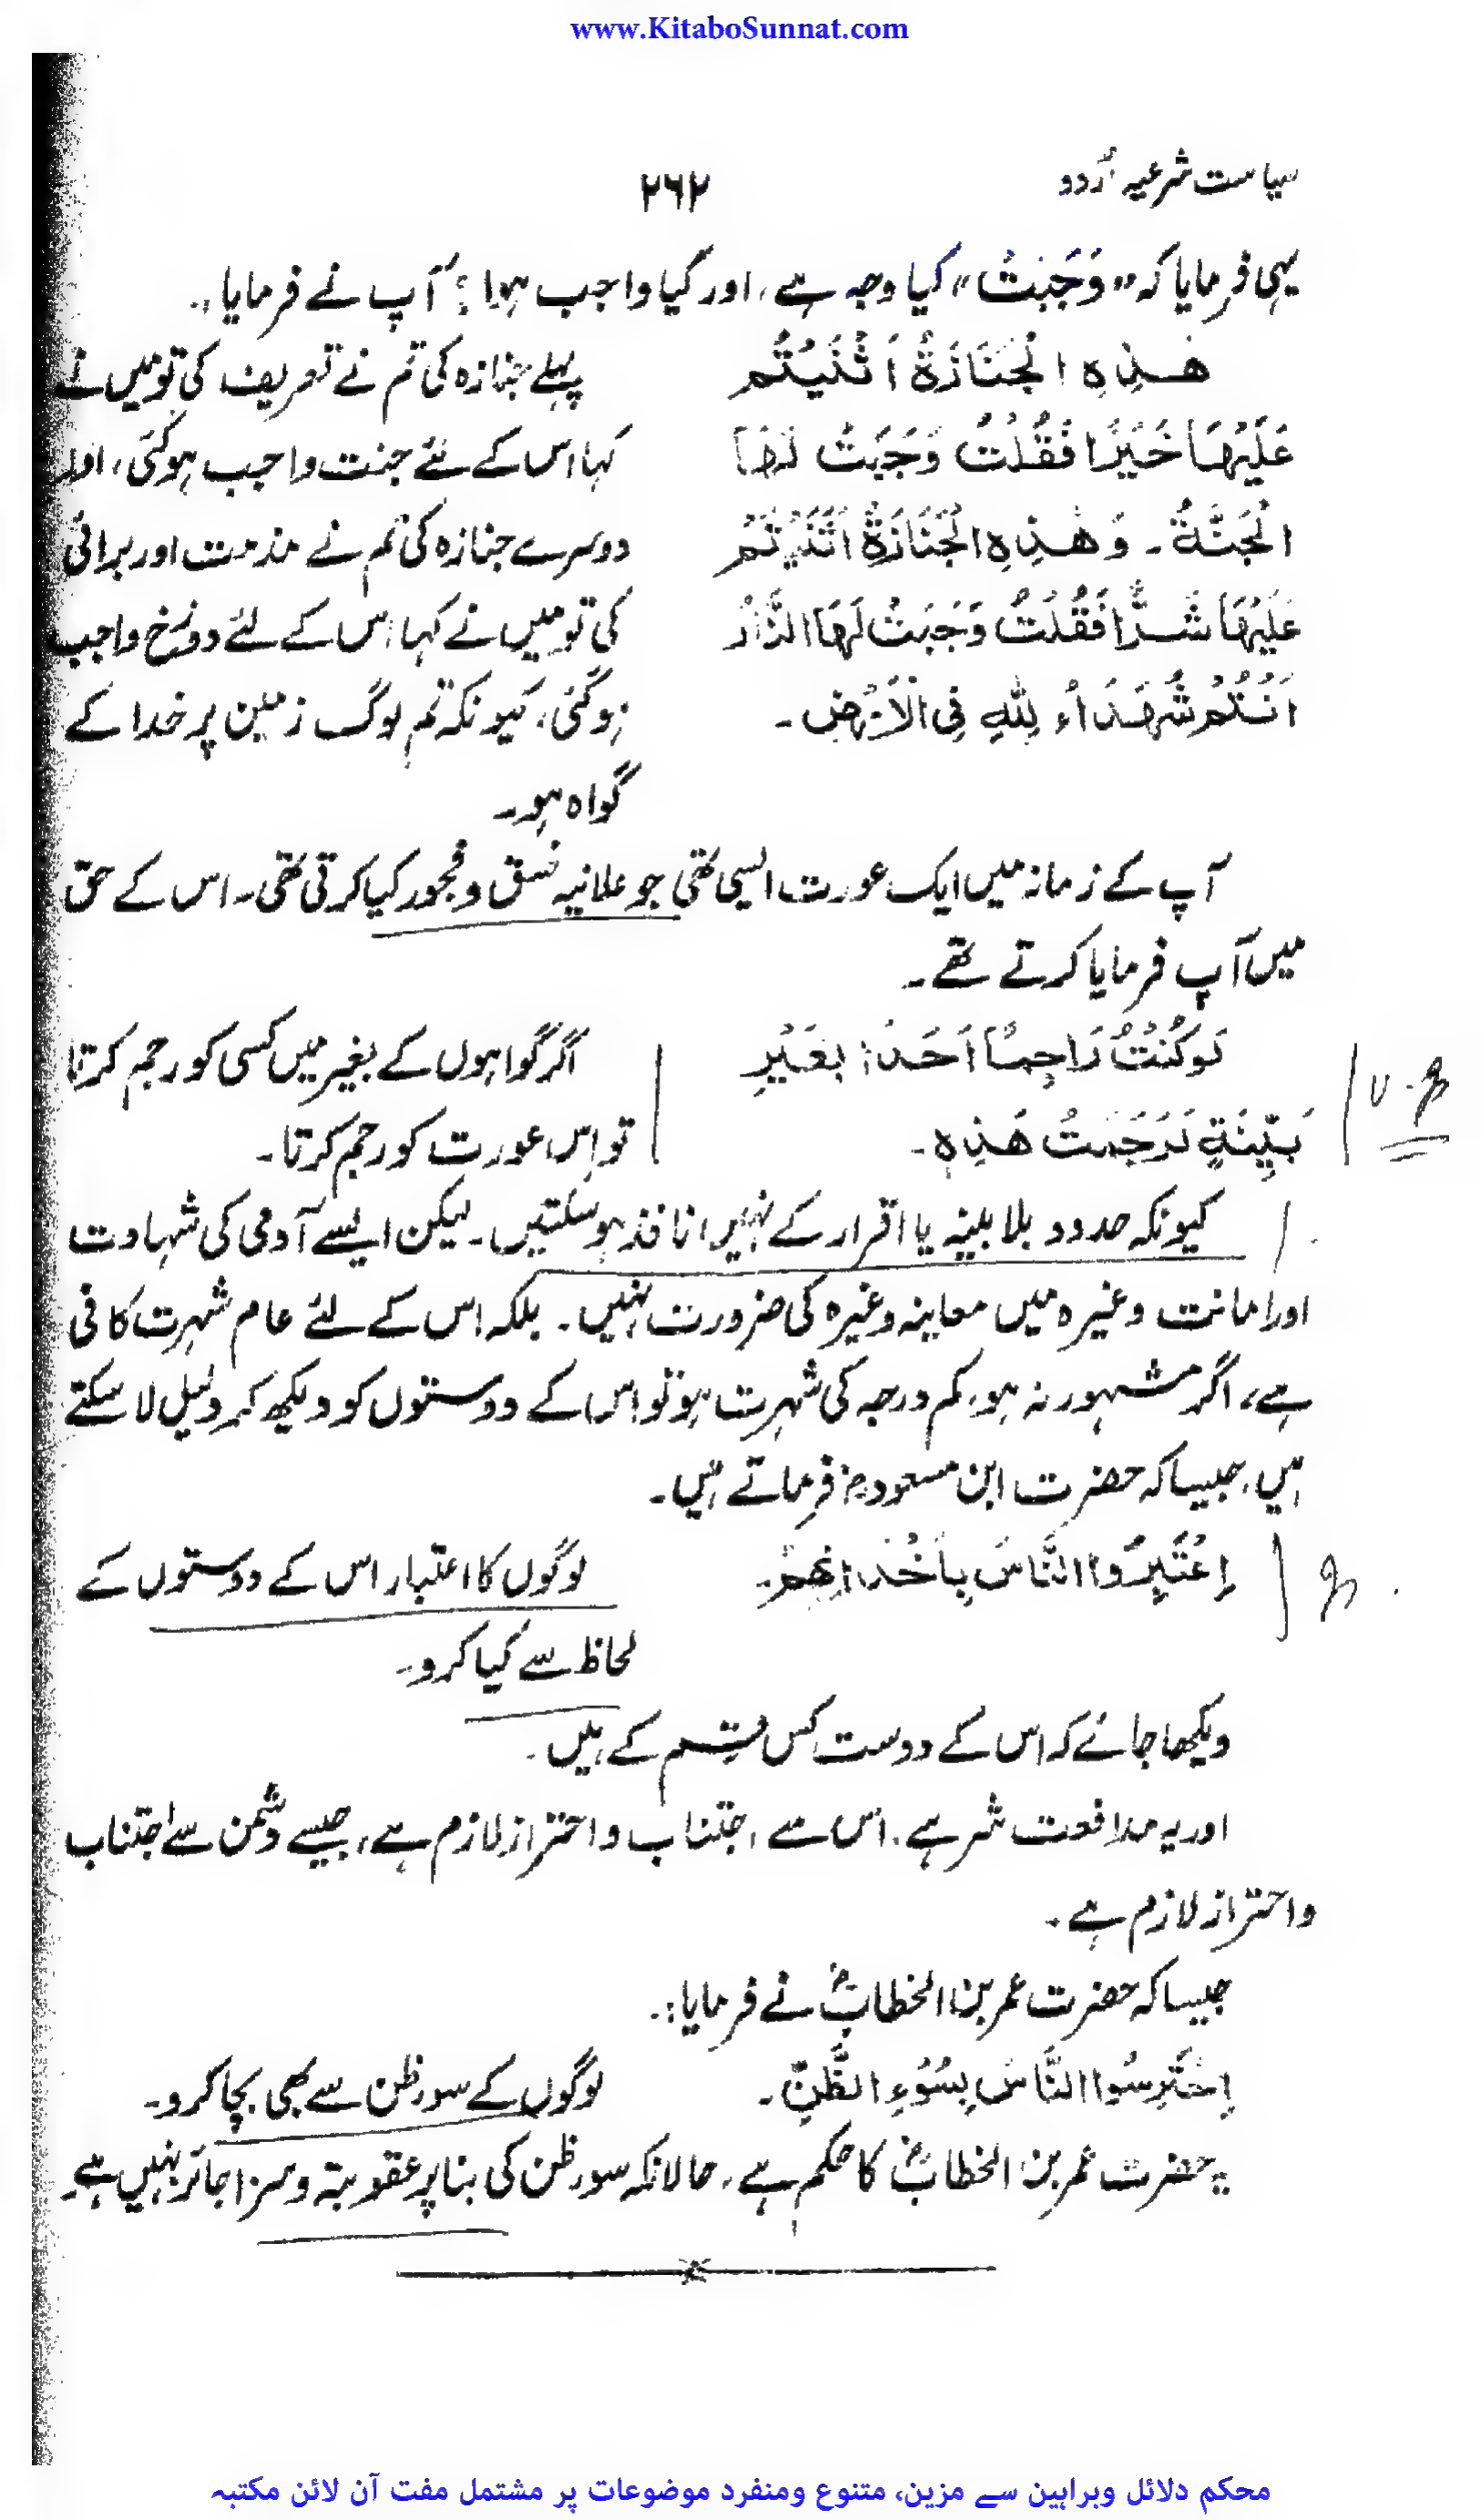 www.KitaboSunnat.com
سیاست شرعیہ اُردو
۲۶۲
یہی فرمایا کہ "وَجَبَتْ" کیا وجہ ہے، اور کیا واجب ہوا؟ آپ نے فرمایا:۔
هٰذِهِ الْجَنَازَةُ اَثْنَيْتُمْ
عَلَيْهَا خَيْرًا فَقُلْتُ وَجَبَتْ لَهَا
الْجَنَّةُ۔ وَهٰذِهِ الْجَنَازَةُ اَثْنَيْتُمْ
عَلَيْهَا شَرًّا فَقُلْتُ وَجَبَتْ لَهَا النَّارُ
اَنْتُمْ شُهَدَاءُ لِلّٰهِ فِی الْاَرْضِ۔
پہلے جنازہ کی تم نے تعریف کی تو میں نے
کہا اس کے لئے جنت واجب ہوگئی، اور
دوسرے جنازہ کی تم نے مذمت اور برائی
کی تو میں نے کہا اس کے لئے دوزخ واجب
ہوگئی، کیونکہ تم لوگ زمین پر خدا کے
گواہ ہو۔
آپ کے زمانہ میں ایک عورت ایسی تھی جو علانیہ فسق و فجور کیا کرتی تھی۔ اس کے حق
میں آپ فرمایا کرتے تھے۔
لَوْ كُنْتُ رَاجِمًا اَحَدًا بِغَيْرِ
بَيِّنَةٍ لَرَجَمْتُ هٰذِهٖ۔
اگر گواہوں کے بغیر میں کسی کو رجم کرتا
تو اِس عورت کو رجم کرتا۔
کیونکہ حدود بلا بینہ یا اقرار کے نہیں نافذ ہوسکتیں۔ لیکن ایسے آدمی کی شہادت
اور امانت وغیرہ میں معاینہ وغیرہ کی ضرورت نہیں۔ بلکہ اس کے لئے عام شہرت کافی
ہے، اگر مشہور نہ ہو، کم درجہ کی شہرت ہو تو اس کے دوستوں کو دیکھ کر دلیل لا سکتے
ہیں، جیسا کہ حضرت ابن مسعودؓ فرماتے ہیں۔
اِعْتَبِرُوا النَّاسَ بِاَخْدَانِهِمْ۔
لوگوں کا اعتبار اس کے دوستوں کے
لحاظ سے کیا کرو۔
دیکھا جائے کہ اس کے دوست کس قسم کے ہیں۔
اور یہ مدافعت شر ہے۔ اس سے اجتناب و احتراز لازم ہے، جیسے دشمن سے اجتناب
و احتراز لازم ہے۔
جیسا کہ حضرت عمر بن الخطابؓ نے فرمایا:۔
اِحْتَرِسُوا النَّاسَ بِسُوْءِ الظَّنِّ۔
لوگوں کے سوء ظن سے بھی بچا کرو۔
یہ حضرت عمر بن الخطابؓ کا حکم ہے، حالانکہ سوء ظن کی بنا پر عقوبتہ و سزا جائز نہیں ہے۔
محکم دلائل وبراہین سے مزین، متنوع ومنفرد موضوعات پر مشتمل مفت آن لائن مکتبہ